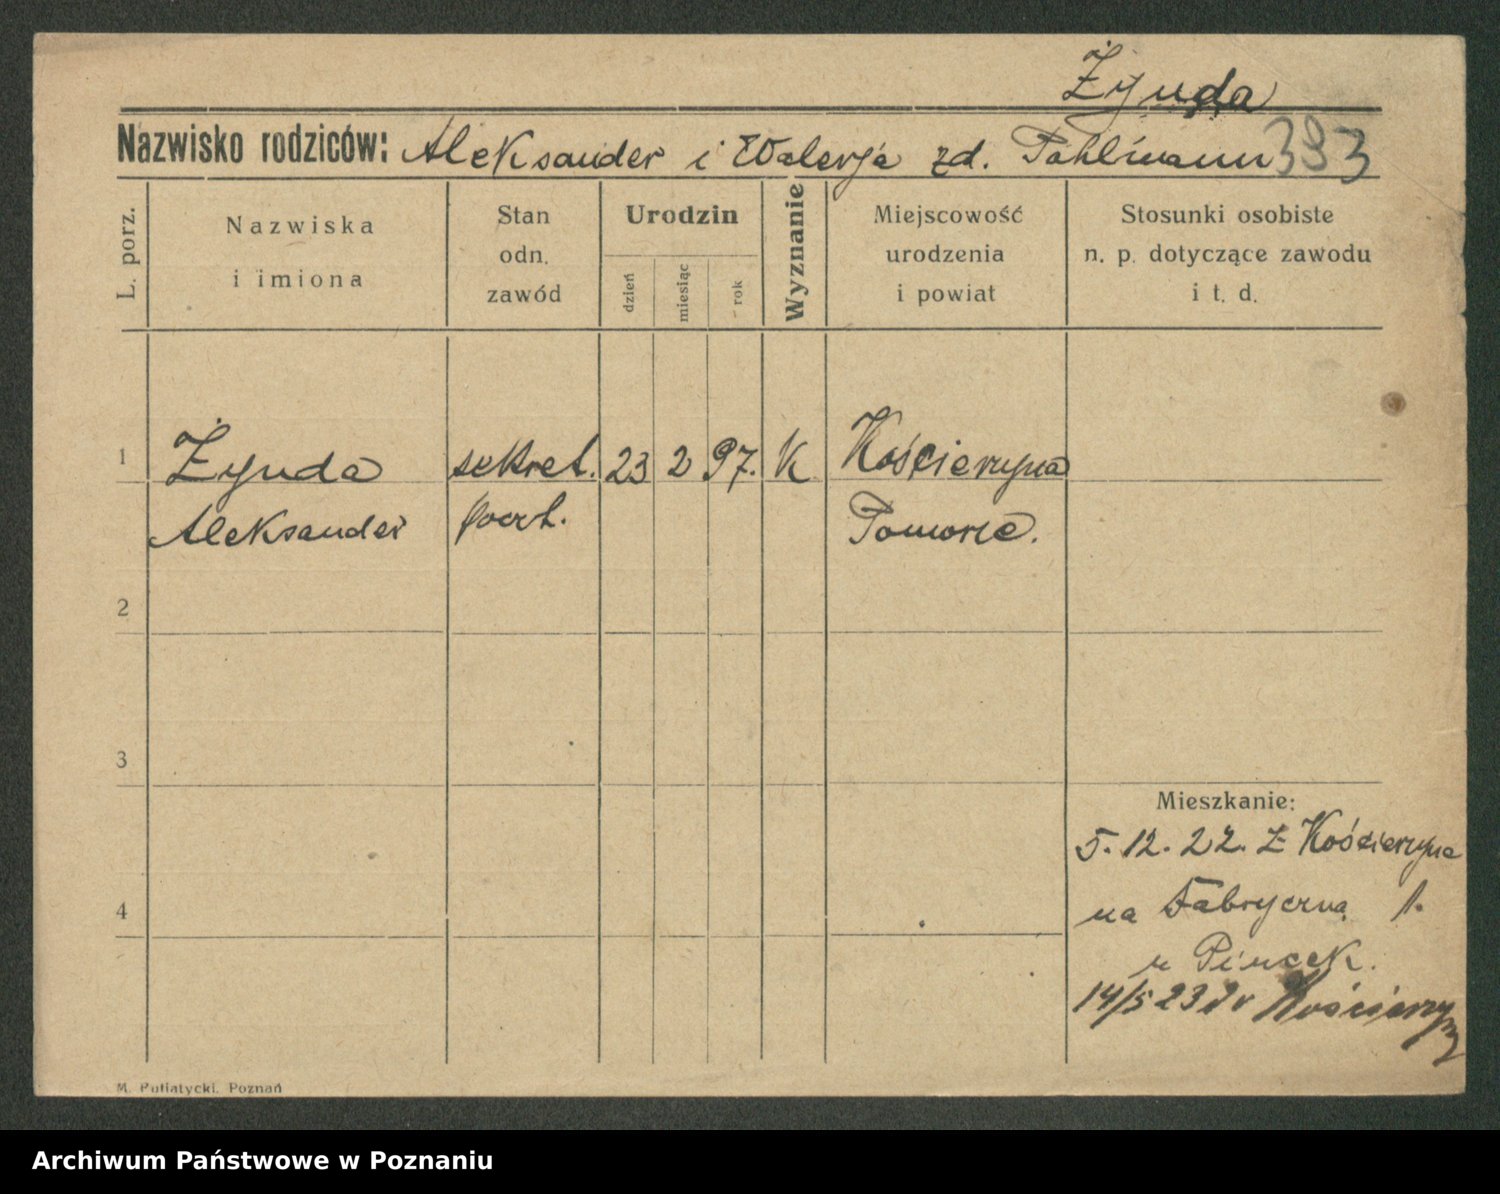 Żynda
Nazwisko rodziców: Aleksander i Walerja zd. Pahlmann 393
L. porz.
Nazwiska
i imiona
Stan
odn.
zawód
Urodzin
dzień
miesiąc
rok
Wyznanie
Miejscowość
urodzenia
i powiat
Stosunki osobiste
n. p. dotyczące zawodu
i t. d.
1 Żynda sekret. 23 2 97. K Kościerzyna
Aleksander poczt. Pomorze.
2
3
Mieszkanie:
5. 12. 22. Z Kościerzyna
na Fabryczną 1.
4
u Pincek.
14/5 23 Kościerzyny
M. Putiatycki, Poznań
Archiwum Państwowe w Poznaniu